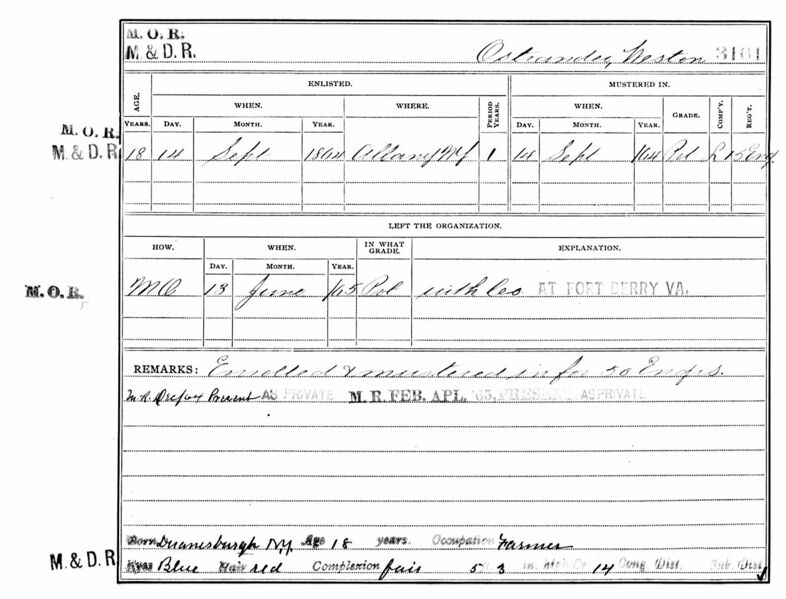 M. O. R.
M. & D. R.
Ostrander, Weston 3161
ENLISTED. MUSTERED IN.
AGE. WHEN. WHERE. PERIOD YEARS. WHEN. GRADE. COMP'Y. REG'T.
YEARS. DAY. MONTH. YEAR. DAY. MONTH. YEAR.
M. O. R.
M. & D. R. 18 14 Sept 1864 Albany NY 1 14 Sept /64 Pvt L 15 Eng.
LEFT THE ORGANIZATION.
HOW. WHEN. IN WHAT GRADE. EXPLANATION.
DAY. MONTH. YEAR.
M. O. R. MO 13 June /65 Pvt with Co AT FORT BERRY VA.
REMARKS: Enrolled & mustered in for 50 Engrs.
M.R. Dec/64 Present AS PRIVATE M. R. FEB. APL. '65, PRESENT AS PRIVATE
Born Duanesburgh N.Y. Age 18 years. Occupation Farmer
M. & D. R. Eyes Blue Hair red Complexion fair 5 3 in. high 14 Cong. Dist. Sub. Dist.